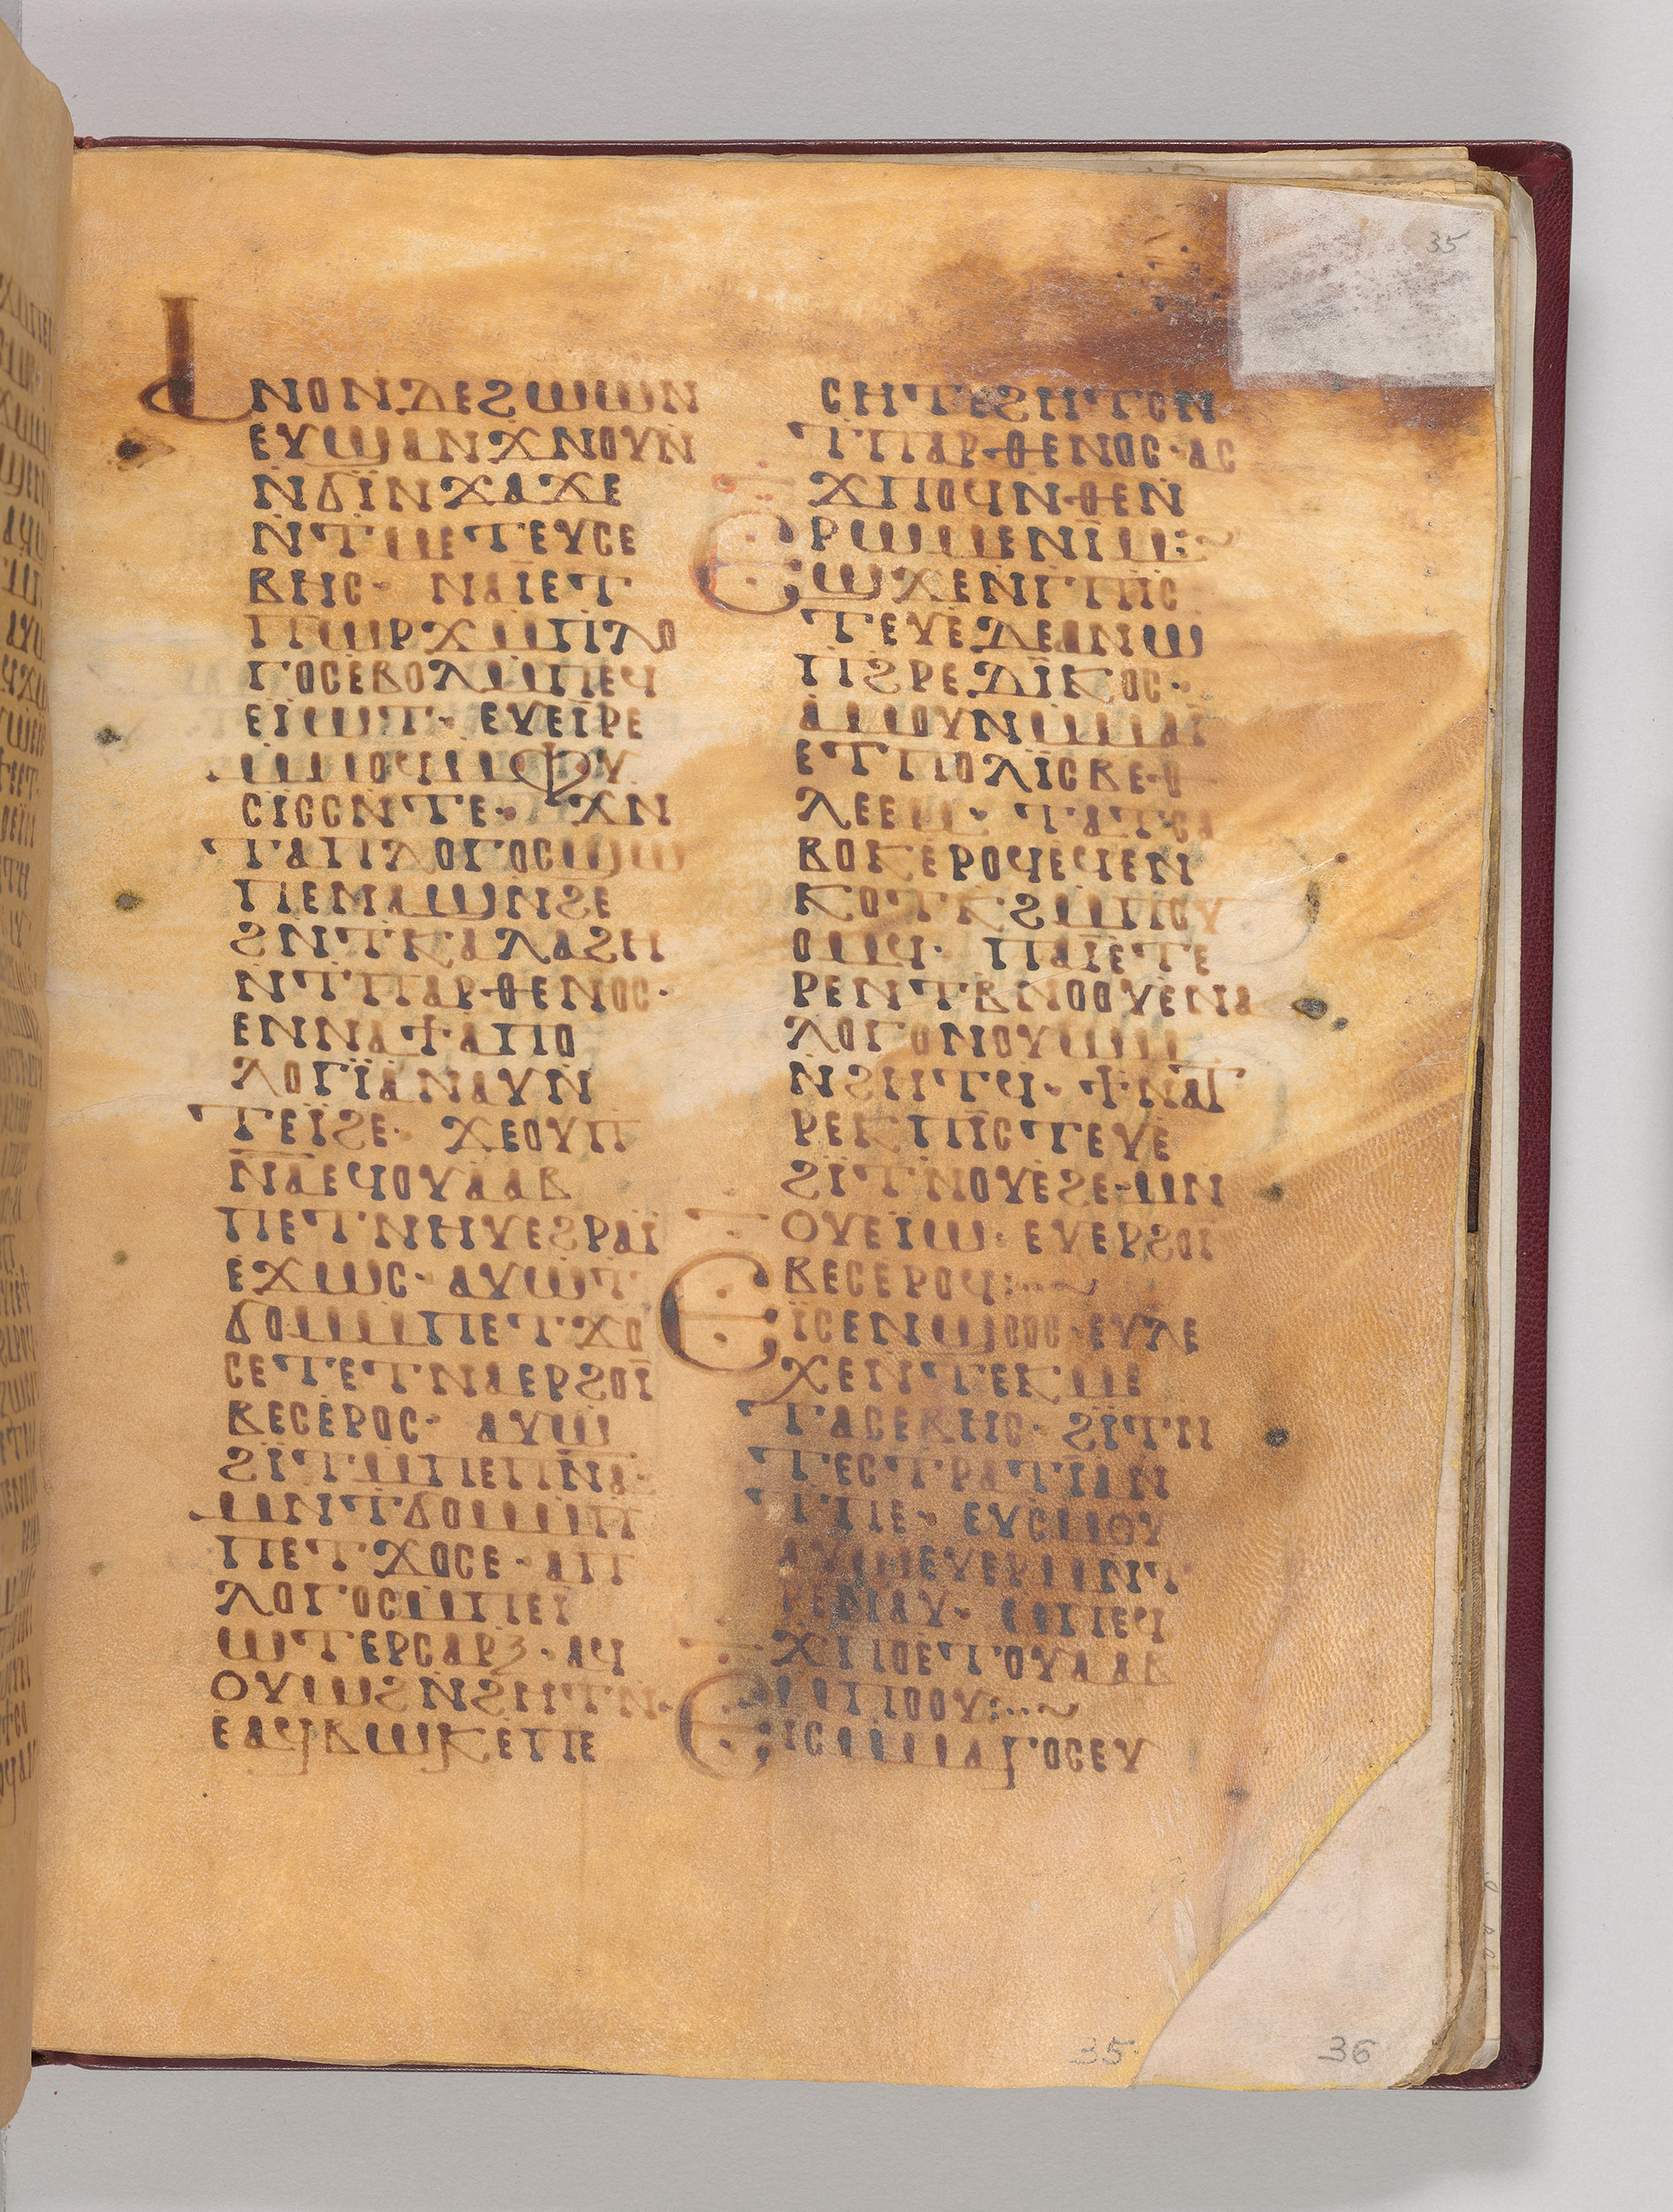 ⲀⲚⲞⲚⲆⲈϨⲰⲰⲚ
ⲈⲨϢⲀⲚϪⲚⲞⲨⲚ
ⲚϬⲒⲚϪⲀϪⲈ
ⲚⲦⲘⲈⲦⲈⲨⲤⲈ
ⲂⲎⲤ· ⲚⲀⲒⲈⲦ
ⲠⲰⲢϪⲘⲠⲖⲞ
ⲄⲞⲤⲈⲂⲞⲖⲘⲠⲈϤ
ⲈⲒⲰⲦ· ⲈⲨⲈⲒⲢⲈ
ⲘⲘⲞϤⲘⲪⲨ
ⲤⲒⲤⲤⲚⲦⲈ· ϪⲚ
ⲦⲀⲠⲖⲞⲄⲞⲤϢⲰ
ⲠⲈⲚⲀϢⲚϨⲈ
ϨⲚⲦⲔⲀⲖⲀϨⲎ
ⲚⲦⲠⲀⲢⲐⲈⲚⲞⲤ·
ⲈⲚⲚⲀϮⲀⲠⲞ
ⲖⲞⲄⲒⲀⲚⲀⲨⲚ
ⲦⲈⲒϨⲈ· ϪⲈⲞⲨⲠ
ⲚⲀⲈϤⲞⲨⲀⲀⲂ
ⲠⲈⲦⲚⲎⲨⲈϨⲢⲀⲒ
ⲈϪⲰⲤ· ⲀⲨⲰⲦ
ϬⲞⲘⲘⲠⲈⲦϪⲞ
ⲤⲈⲦⲈⲦⲚⲀⲈⲢϨⲞⲒ
ⲂⲈⲤⲈⲢⲞⲤ· ⲀⲨⲰ
ϨⲒⲦⲘⲠⲈⲠⲚⲀ·
ⲘⲚⲦϬⲞⲘⲘⲠ
ⲠⲈⲦϪⲞⲤⲈ· ⲀⲠ
ⲖⲞⲄⲞⲤⲘⲠⲈⲒ
ⲰⲦⲈⲢⲤⲀⲢⲜ· ⲀϤ
ⲞⲨⲰϨⲚϨⲎⲦⲚ·
ⲈⲀϤⲂⲰⲔⲈⲠⲈ
ⲤⲎⲦⲈϨⲎⲦⲤⲚ
ⲦⲠⲀⲢⲐⲈⲚⲞⲤ· ⲀⲤ
ϪⲠⲞϤⲚⲐⲈⲚ
ⲢⲰⲘⲈⲚⲒⲘ:~
ⲈϢϪⲈⲚⲄⲠⲒⲤ
ⲦⲈⲨⲈⲆⲈⲀⲚⲰ
ⲠϨⲢⲈⲆⲒⲔⲞⲤ·
ⲀⲘⲞⲨⲚⲘⲘⲀⲒ
ⲈⲦⲠⲞⲖⲒⲤⲂⲈⲐ
ⲖⲈⲈⲘ· ⲦⲀⲦⲤⲀ
ⲂⲞⲔⲈⲢⲞϤⲈϤⲈⲚ
ⲔⲞⲦⲔϨⲘⲠⲞⲨ
ⲞⲘϤ· ⲠⲀⲒⲈⲦⲈ
ⲢⲈⲚⲦⲂⲚⲞⲞⲨⲈⲚⲀ
ⲖⲞⲄⲞⲚⲞⲨⲰⲘ
ⲚϨⲎⲦϤ· ϮⲚⲀⲦ
ⲢⲈⲔⲠⲒⲤⲦⲈⲨⲈ
ϨⲒⲦⲚⲞⲨⲈϨⲈ·ⲘⲚ
ⲞⲨⲈⲒⲰ: ⲈⲨⲈⲢϨⲞⲒ
ⲂⲈⲤⲈⲢⲞϤ:··~
ⲈⲒⲤⲈⲚϢⲞⲞⲤ·ⲈⲨⲖⲈ
ⲬⲈⲚⲦⲈⲔⲘⲈ
ⲦⲀⲤⲈⲂⲎⲤ· ϨⲒⲦⲚ
ⲦⲈⲤⲦⲢⲀⲦⲒⲀⲚ
ⲦⲠⲈ· ⲈⲨⲤⲘⲞⲨ
ⲀⲨⲰⲈⲨⲈⲢⲘⲚⲦ
ⲢⲈⲘⲀⲨ· ⲈⲠⲈϤ
ϪⲠⲞⲈⲦⲞⲨⲀⲀⲂ
ⲘⲠⲞⲞⲨ:··~
ⲈⲒⲤⲘⲘⲀⲄⲞⲤⲈⲨ
35
35
36